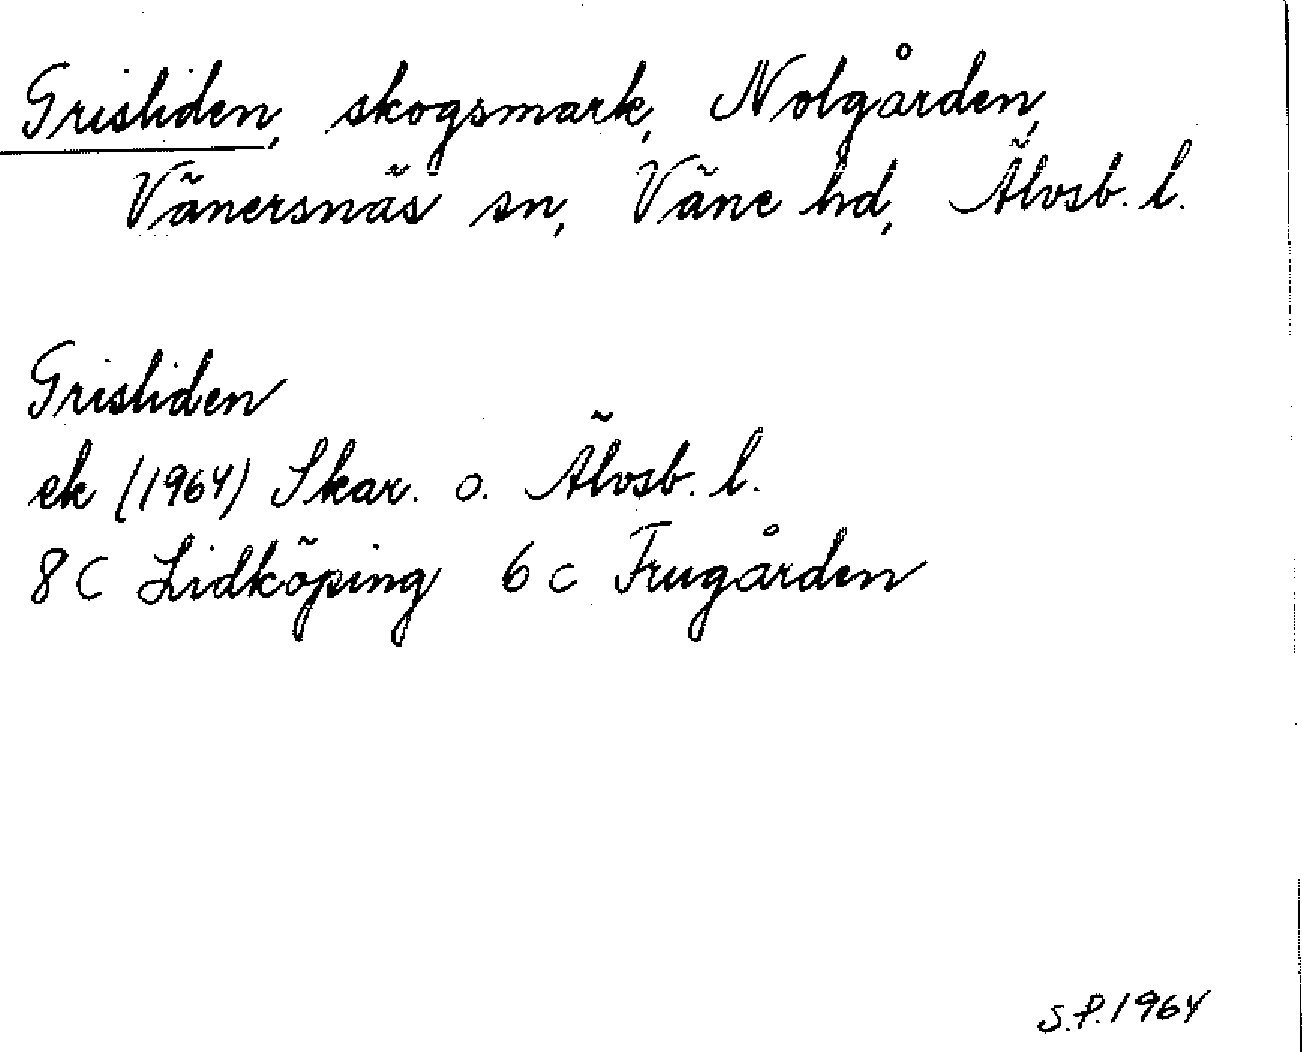 Grisliden, skogsmark, Nolgården,
Vänersnäs sn, Väne hd, Älvsb. l.
Grisliden
ek (1964) Skar. o. Älvsb. l.
8 C Lidköping 6 c Frugården
S.P. 1964